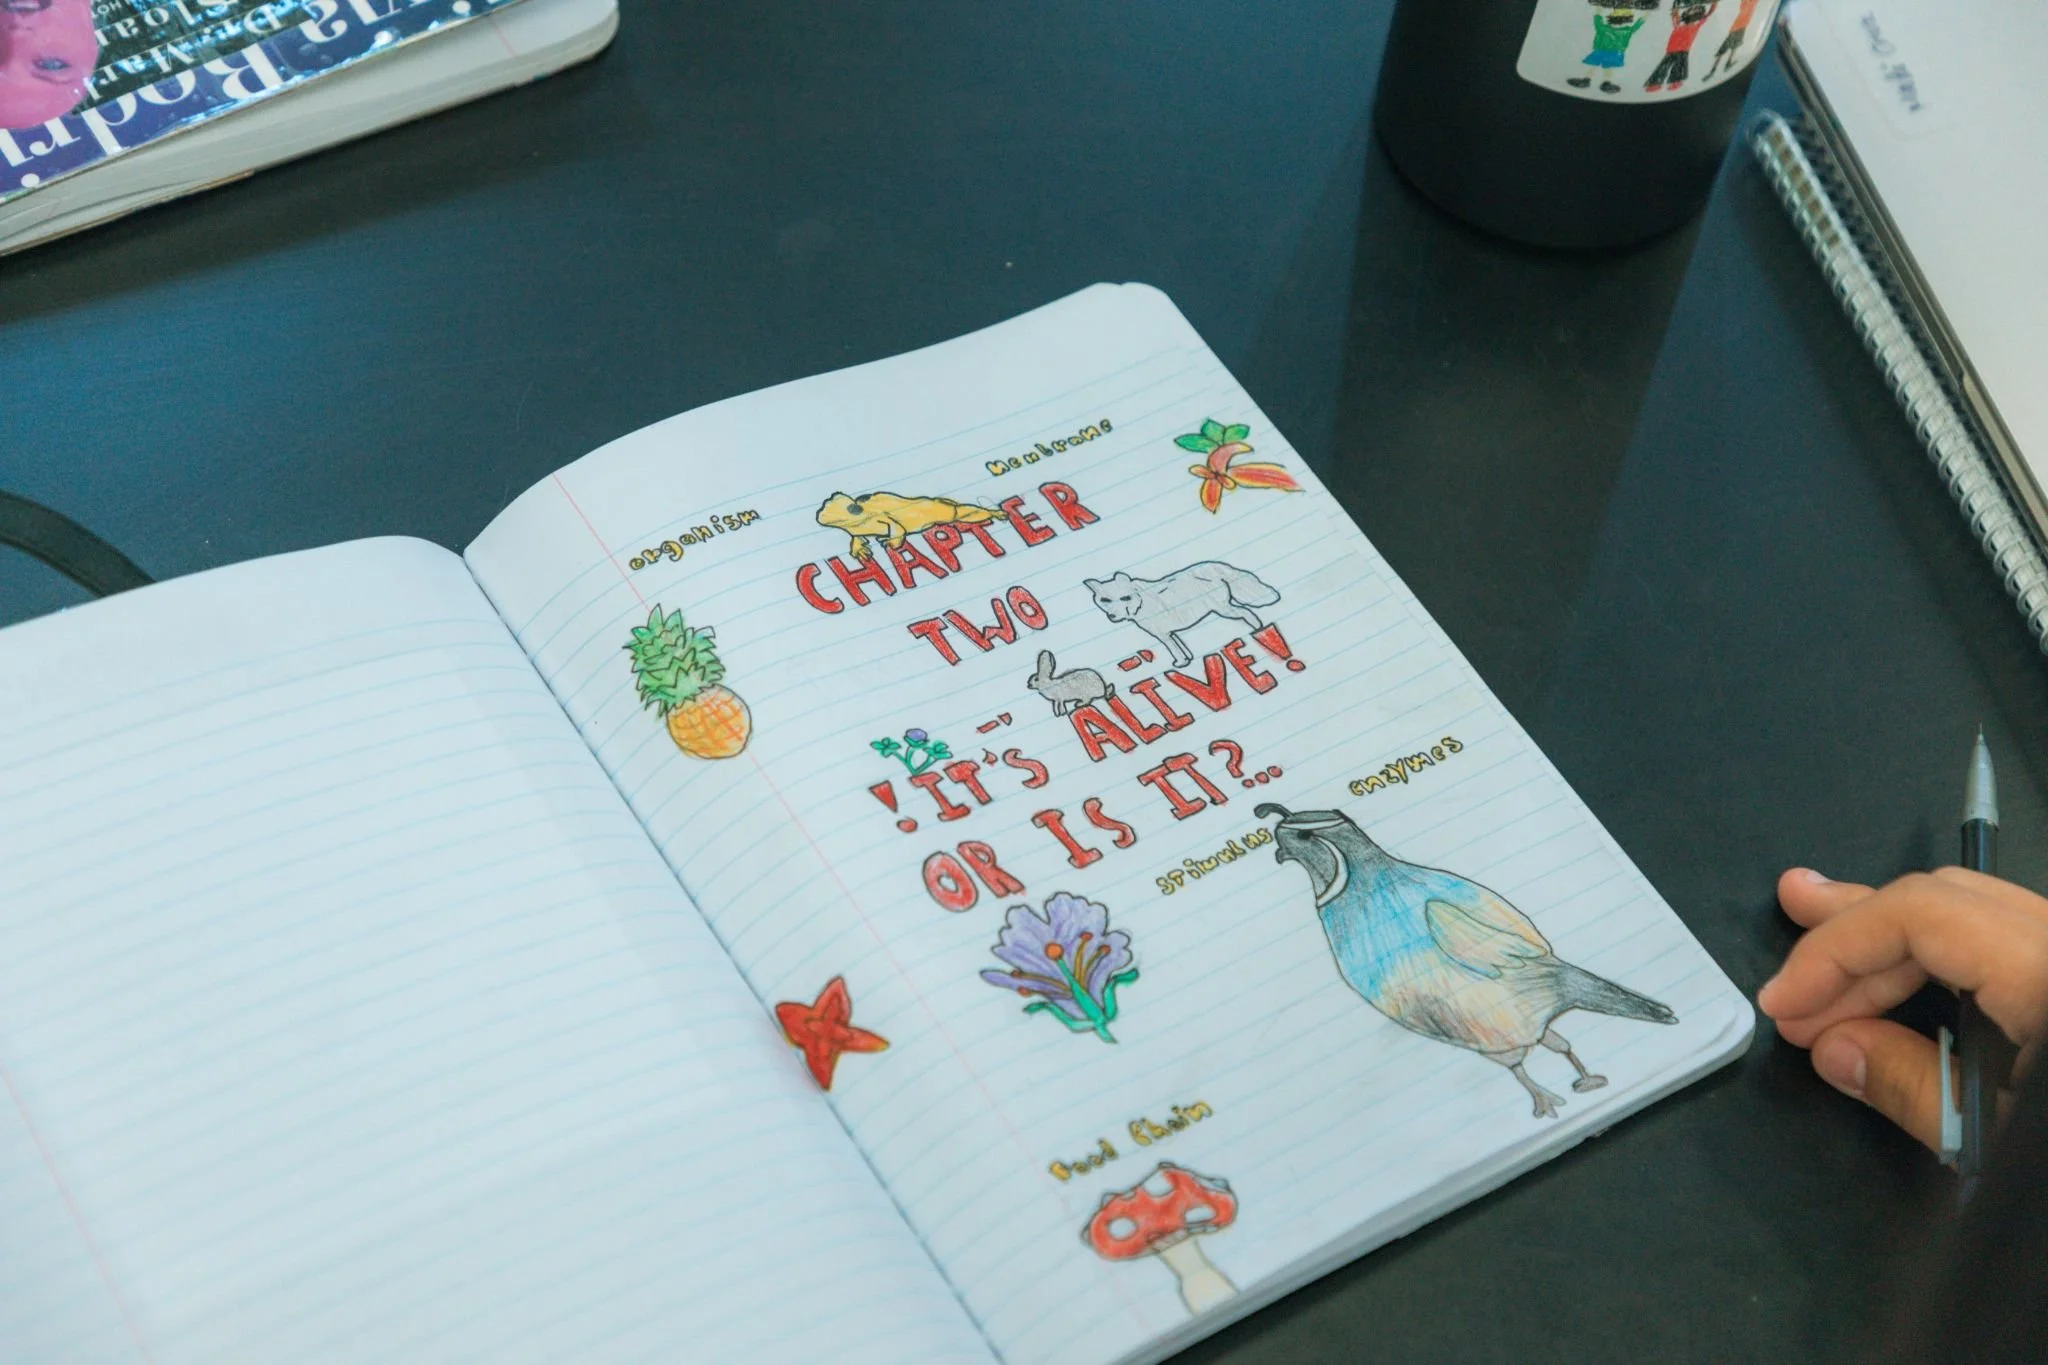 organism
Membrane
CHAPTER
TWO
¡IT'S ALIVE!
OR IS IT?...
enzymes
stimulus
Food Chain
Rodri